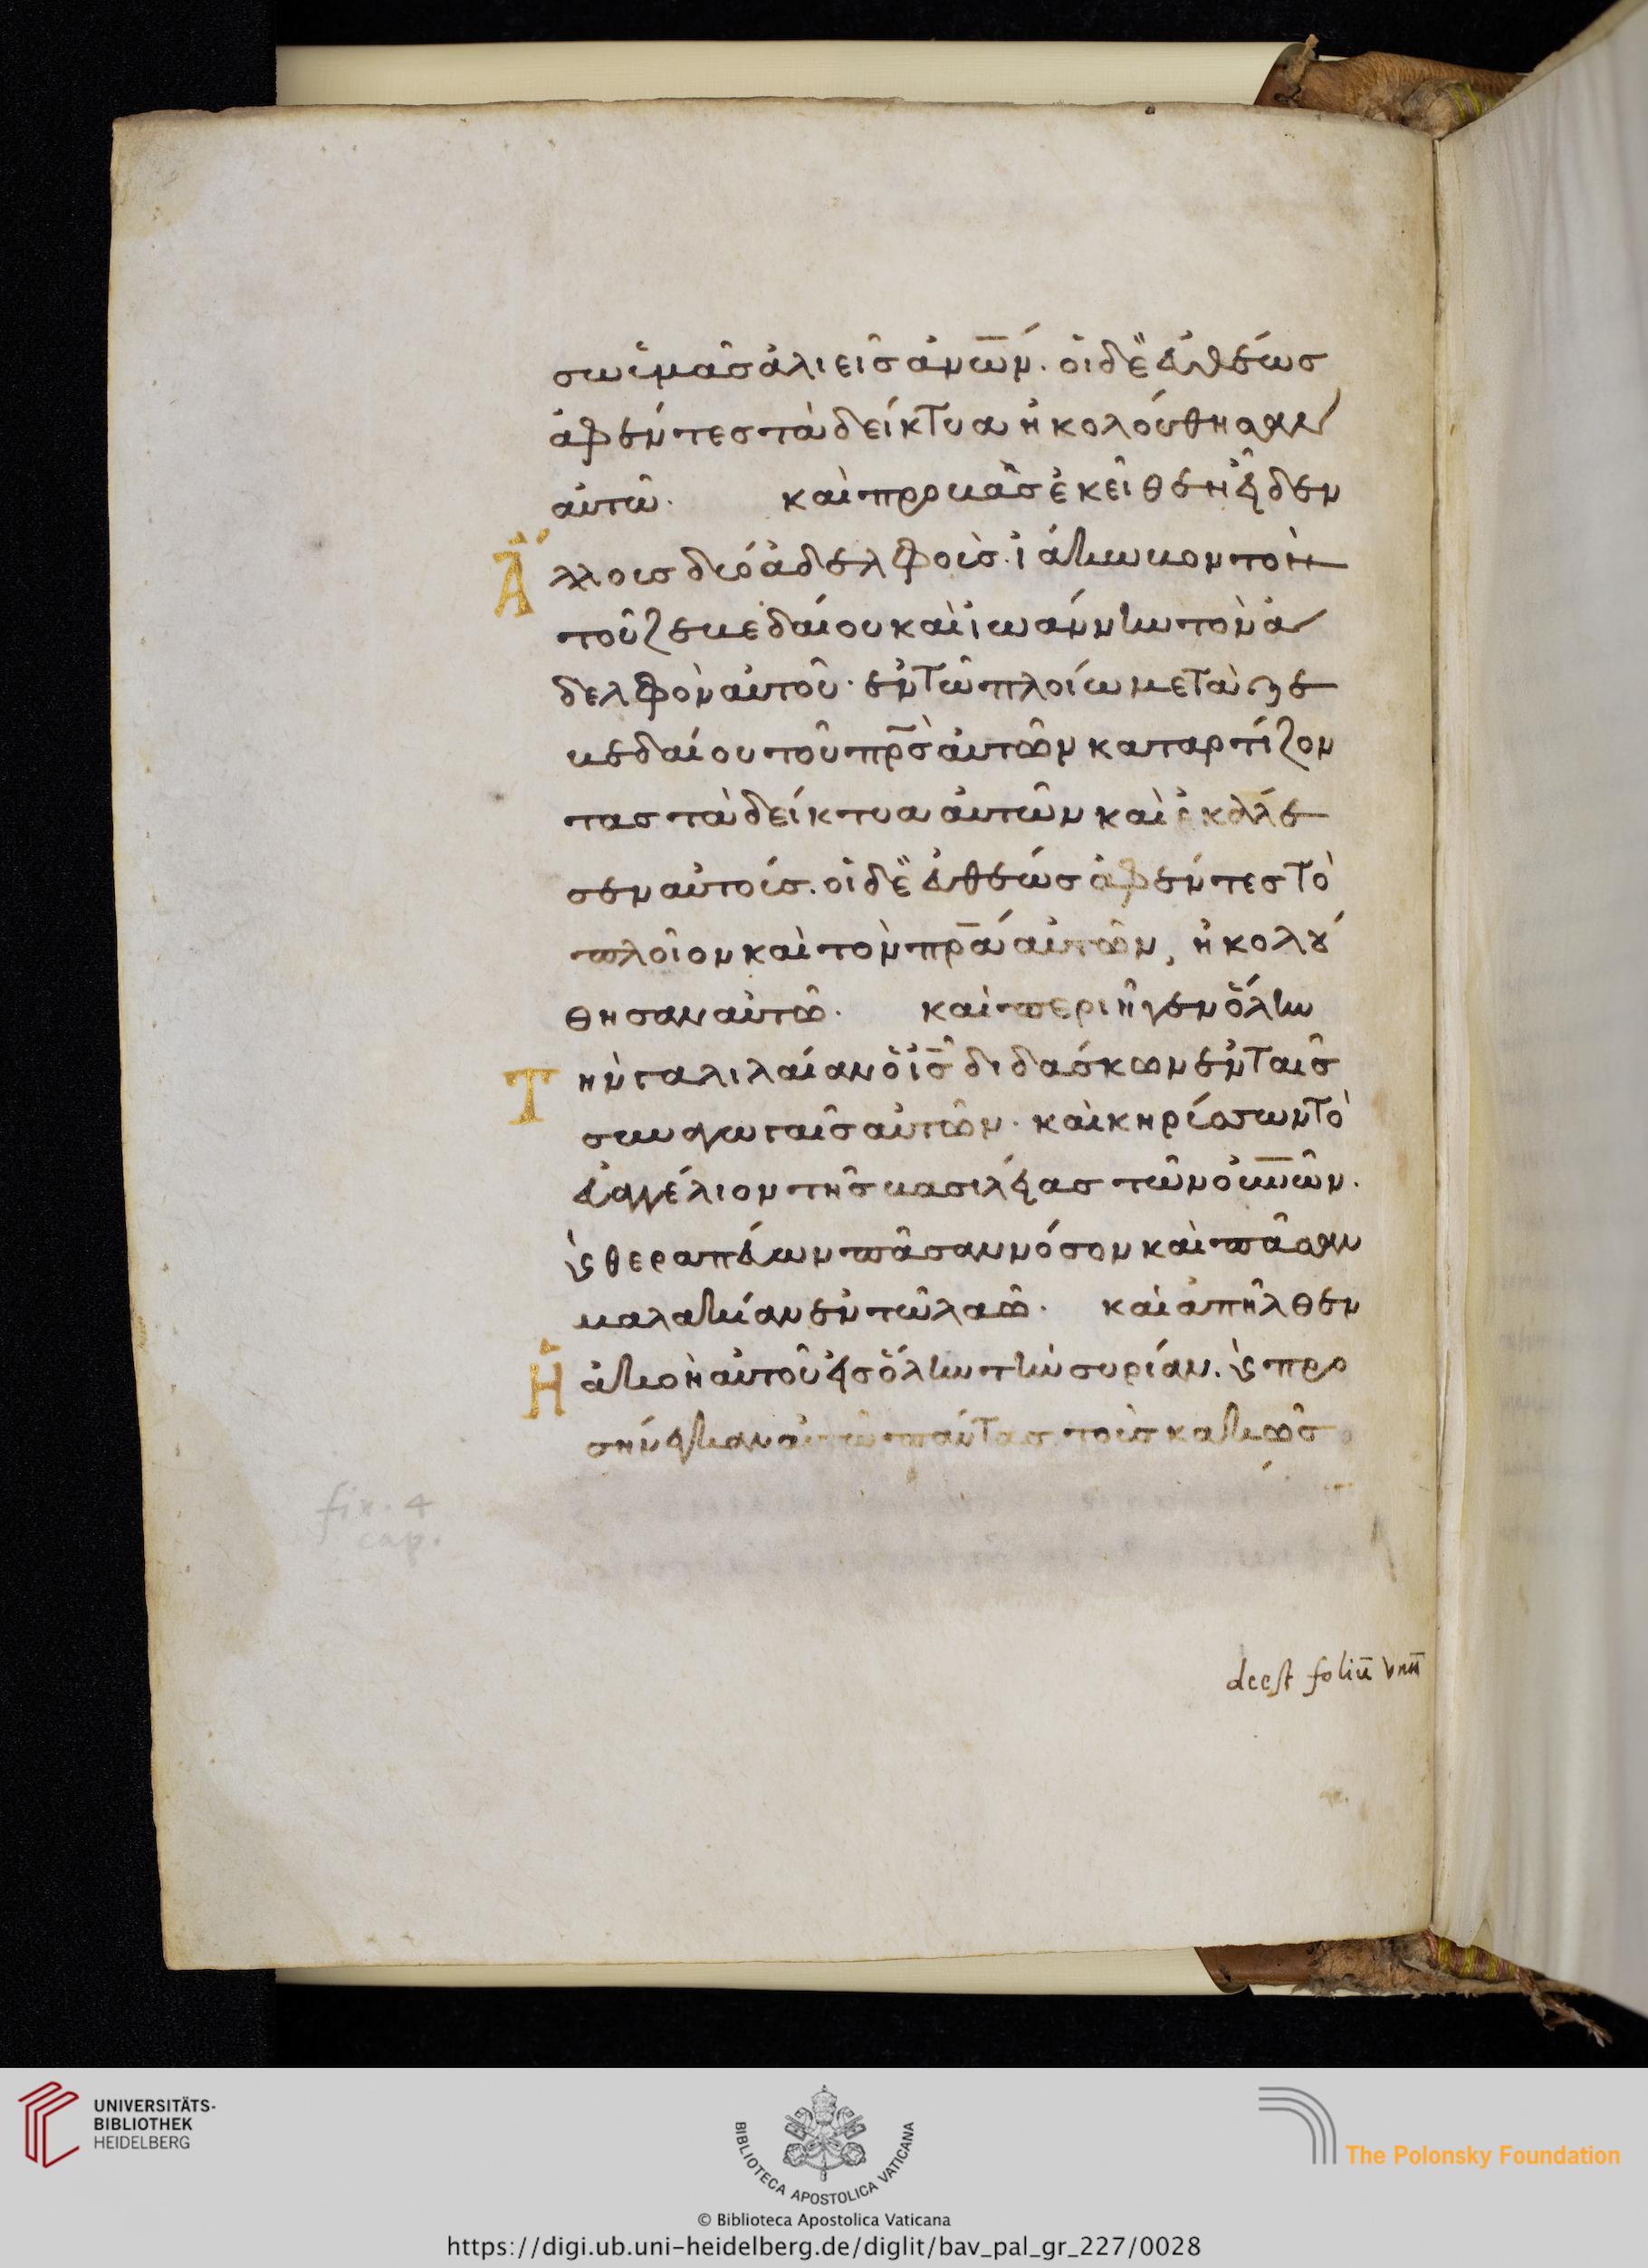 σω ὑμᾶσ ἁλιεῖσ ἀν̅ω̅ν̅. οἱ δὲ εὐθέωσ
ἀφέντεσ τὰ δείκτυα ἠκολούθησαν
αὐτῶ. καὶ προβὰσ ἐκεῖθεν εἶδεν
Ἄλλουσ δύο ἀδελφοὺσ. ἰάκωβον τὸν
τοῦ ζεβεδαίου καὶ ἰωάννην τὸν ἀ
δελφὸν αὐτοῦ. ἐν τῶ πλοίω μετὰ ζε
βεδαίου τοῦ π̅ρ̅σ̅ αὐτῶν καταρτίζον
τασ τὰ δείκτυα αὐτῶν καὶ ἐκάλε
σεν αὐτούσ. οἱ δὲ εὐθέωσ ἀφέντεσ τὸ
πλοῖον καὶ τὸν π̅ρ̅α̅ αὐτῶν, ἠκολού
θησαν αὐτῶ. καὶ περιῆγεν ὅλην
Τὴν γαλιλαίαν ὁ ι̅σ̅ διδάσκων ἐν ταῖσ
συναγωγαῖσ αὐτῶν. καὶ κηρύσσων τὸ
εὐαγγέλιον τῆσ βασιλείασ τῶν ο̅υ̅ν̅ω̅ν̅.
ϗ θεραπεύων πᾶσαν νόσον καὶ πᾶσαν
μαλακίαν ἐν τῶ λαῶ. καὶ ἀπῆλθεν
Ἡ ἀκοὴ αὐτοῦ εἰσ ὅλην τὴν συρίαν. ϗ προ
σήνεγκαν αὐτῶ πάντασ τοὺσ κακῶσ
fix. 4
cap.
deest foliū vnū
UNIVERSITÄTS-
BIBLIOTHEK
HEIDELBERG
BIBLIOTECA APOSTOLICA VATICANA
The Polonsky Foundation
© Biblioteca Apostolica Vaticana
https://digi.ub.uni-heidelberg.de/diglit/bav_pal_gr_227/0028